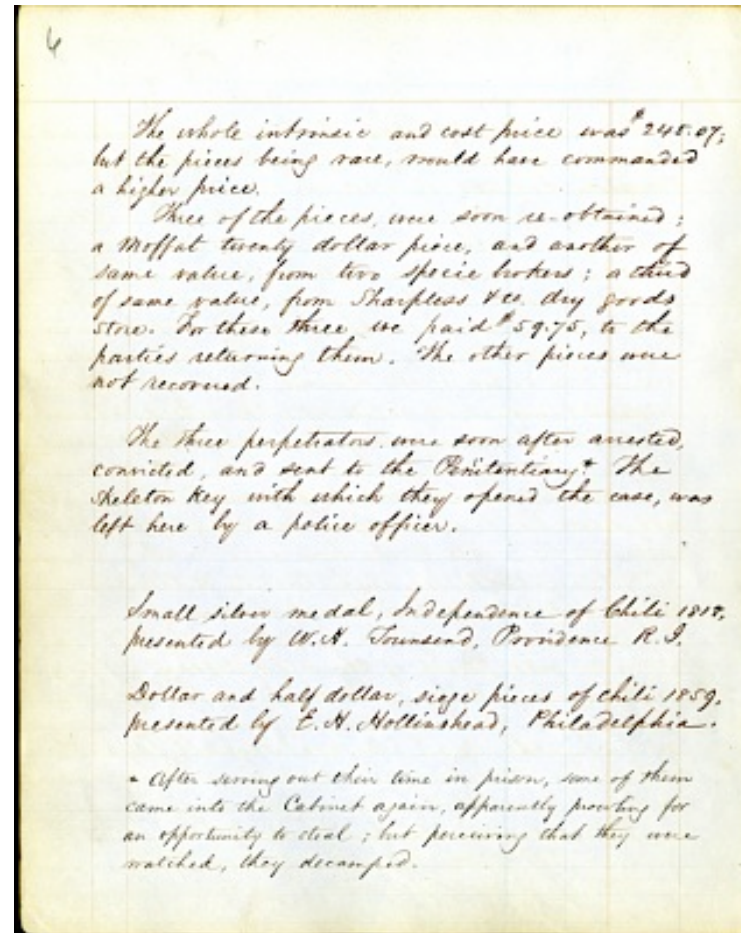 6
The whole intrinsic and cost price was $245.07;
but the pieces being rare, would have commanded
a higher price.
Three of the pieces, were soon re-obtained;
a Moffat twenty dollar piece, and another of
same value, from two specie brokers; a third
of same value, from Sharpless & co. dry goods
store. For these three we paid $59.75, to the
parties returning them. The other pieces were
not recovered.
The three perpetrators were soon after arrested,
convicted, and sent to the Penitentiary.* The
skeleton key with which they opened the case, was
left here by a police officer.
Small silver medal, Independence of Chili 1818,
presented by W. H. Townsend, Providence R. I.
Dollar and half dollar, siege pieces of Chili 1859,
presented by E. H. Hollinshead, Philadelphia.
* After serving out their time in prison, some of them
came into the Cabinet again, apparently prowling for
an opportunity to steal; but perceiving that they were
watched, they decamped.